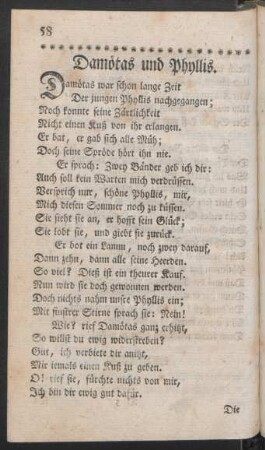 58
Damötas und Phyllis.
Damötas war schon lange Zeit
Der jungen Phyllis nachgegangen;
Noch konnte seine Zärtlichkeit
Nicht einen Kuß von ihr erlangen.
Er bat, er gab sich alle Müh;
Doch seine Spröde hört ihn nie.
Er sprach: Zwey Bänder geb ich dir:
Auch soll kein Warten mich verdrüssen.
Versprich nur, schöne Phyllis, mir,
Mich diesen Sommer noch zu küssen.
Sie sieht sie an, er hofft sein Glück;
Sie lobt sie, und giebt sie zurück.
Er bot ein Lamm, noch zwey darauf,
Dann zehn, dann alle seine Heerden.
So viel? Dieß ist ein theurer Kauf.
Nun wird sie doch gewonnen werden.
Doch nichts nahm unsre Phyllis ein;
Mit finstrer Stirne sprach sie: Nein!
Wie? rief Damötas ganz erhitzt,
So willst du ewig widerstreben?
Gut, ich verbiete dir anitzt,
Mir jemals einen Kuß zu geben.
O! rief sie, fürchte nichts von mir,
Ich bin dir ewig gut dafür.
Die